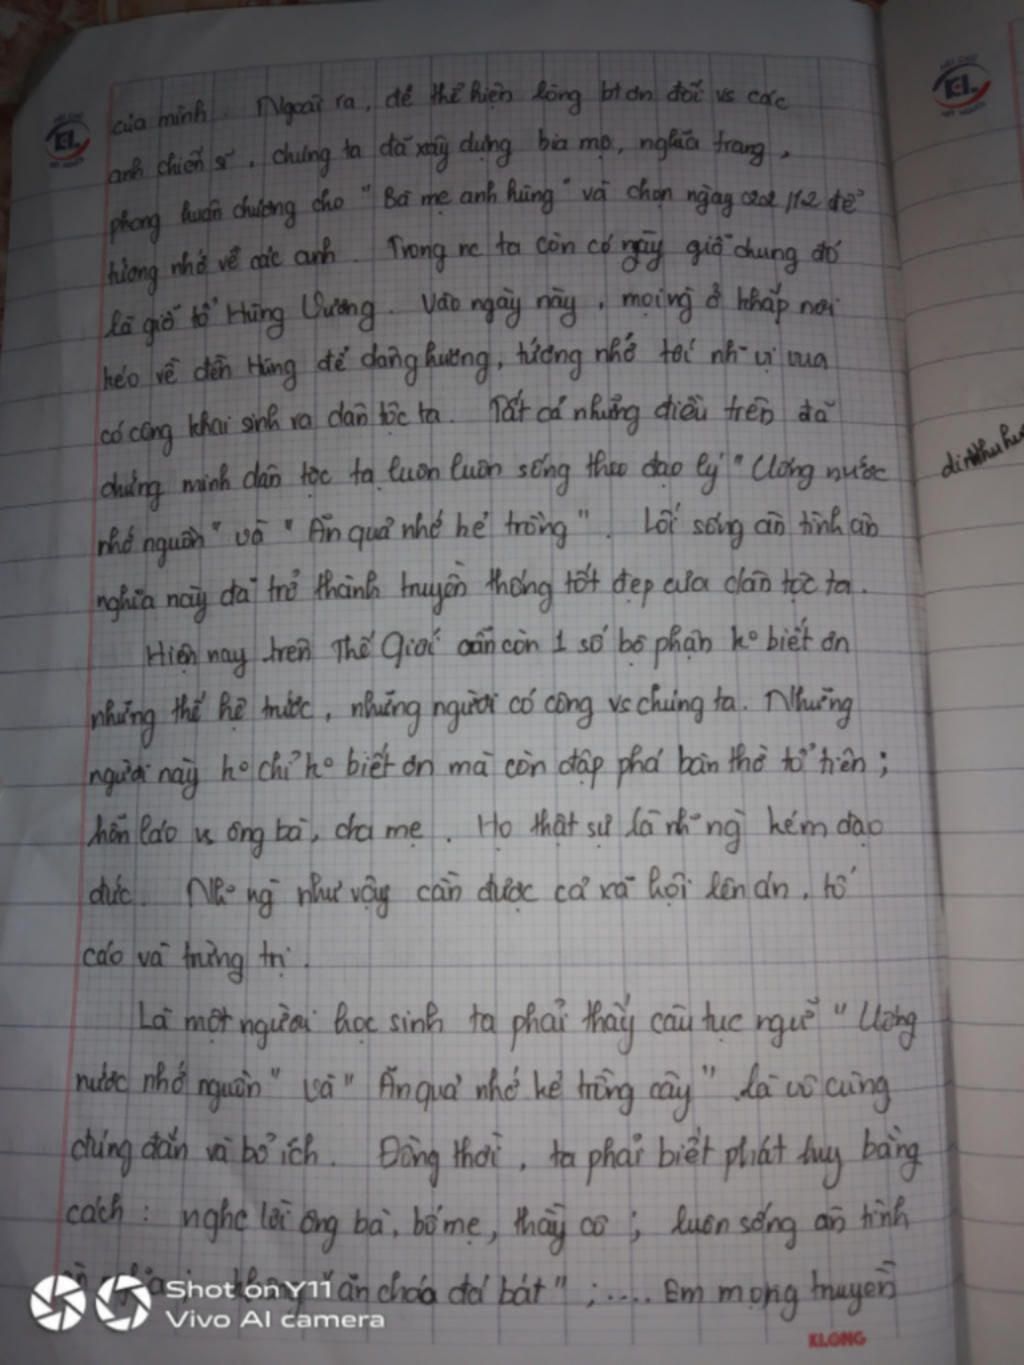 của mình. Ngoài ra, để thể hiện lòng bt ơn đối vs các
anh chiến sĩ, chúng ta đã xây dựng bia mộ, nghĩa trang,
phong huân chương cho "Bà mẹ anh hùng" và chọn ngày để
tưởng nhớ về các anh. Trong nc ta còn có ngày giỗ chung đó
là giỗ tổ Hùng Vương. Vào ngày này, mọi ng ở khắp nơi
kéo về đền Hùng để dâng hương, tưởng nhớ tới nh~ vị vua
có công khai sinh ra dân tộc ta. Tất cả những điều trên đã
chứng minh dân tộc ta luôn luôn sống theo đạo lý "Uống nước
nhớ nguồn" và "Ăn quả nhớ kẻ trồng". Lối sống ân tình ân
nghĩa này đã trở thành truyền thống tốt đẹp của dân tộc ta.
Hiện nay trên Thế Giới vẫn còn 1 số bộ phận ko biết ơn
những thế hệ trước, những người có công vs chúng ta. Những
người này ko chỉ ko biết ơn mà còn đập phá bàn thờ tổ tiên;
hỗn láo vs ông bà, cha mẹ. Họ thật sự là nh~ ng kém đạo
đức. Nh~ ng như vậy cần được cả xã hội lên án, tố
cáo và trừng trị.
Là một người học sinh ta phải thấy câu tục ngữ "Uống
nước nhớ nguồn" và "Ăn quả nhớ kẻ trồng cây" là vô cùng
đúng đắn và bổ ích. Đồng thời, ta phải biết phát huy bằng
cách: nghe lời ông bà, bố mẹ, thầy cô; luôn sống ân tình
ăn cháo đá bát";.... Em mong truyền
Shot on Y11
Vivo AI camera
KLONG